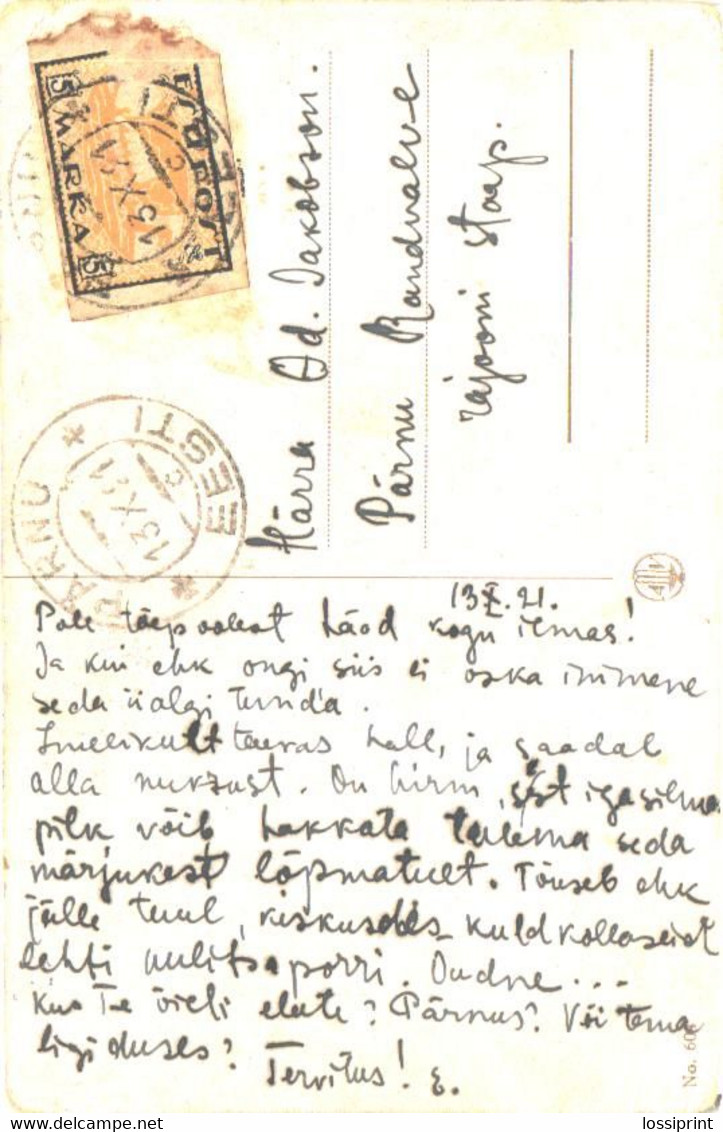 EESTI POST
5 MARKA 5
13 X 21
PÄRNU * EESTI *
13 X 21
Härra Ed. Jakobson.
Pärnu Randvalve
rajooni staap.
13 X. 21.
Pole tõepoolest häod kogu ilmas!
Ja kui ehk ongi siis ei oska inimene
seda iialgi tunda.
Imelikult taevas hall, ja saadab
alla nukrust. On hirm, sest iga silma
pilk võib hakkata tulema seda
märjukest lõpmatult. Tõuseb ehk
jälle tuul, kiskusdes kuldkollaseid
lehti uulitsa porri. Oudne...
Kus Te õieti elate? Pärnus? Või tema
ligiduses? Tervitus! E.
No. 60
lossiprint